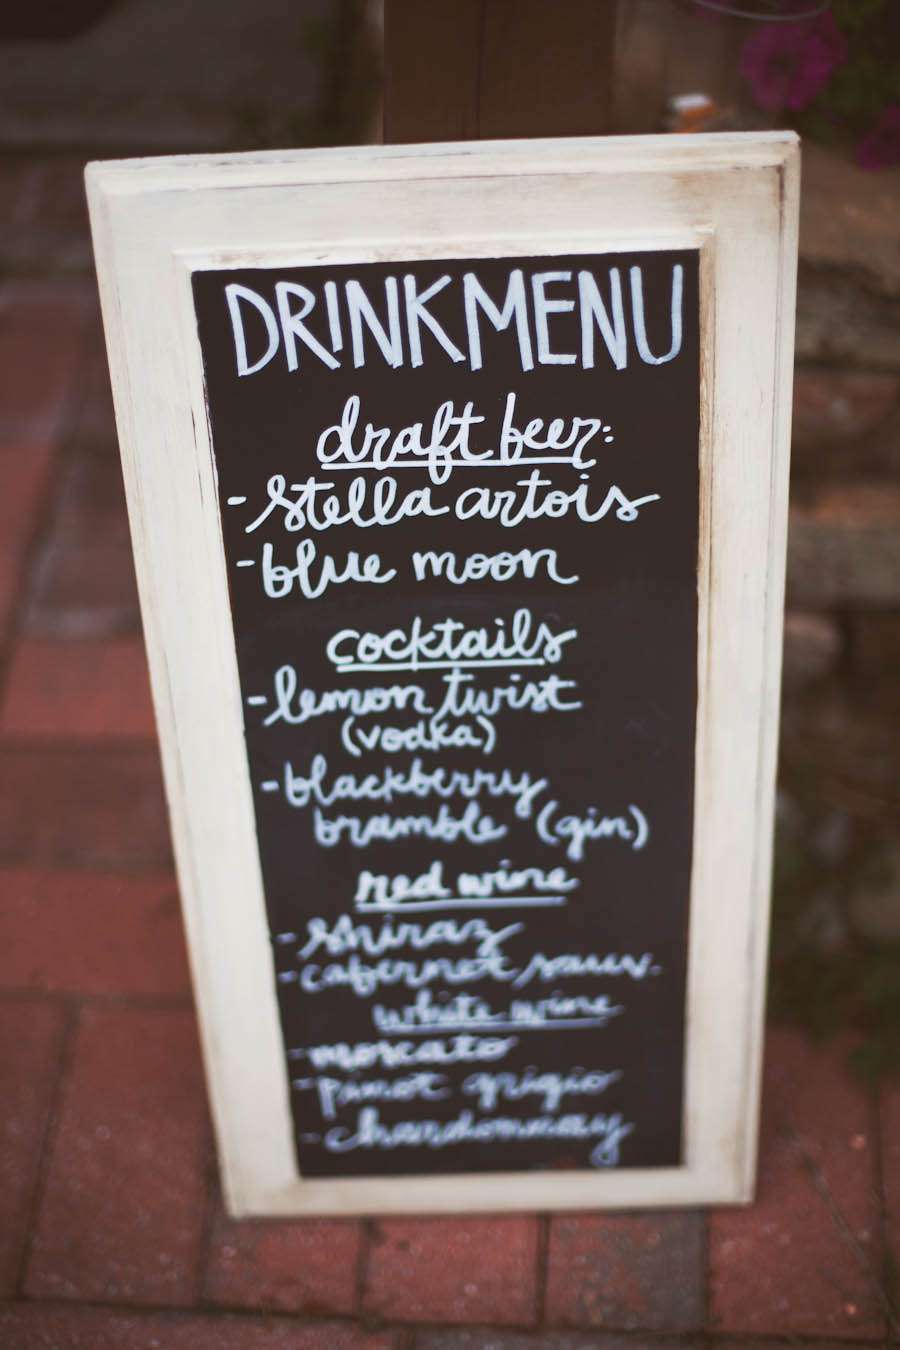 DRINK MENU
draft beer:
- stella artois
- blue moon
cocktails
- lemon twist
(vodka)
- blackberry
bramble (gin)
red wine
- shiraz
- cabernet sauv.
white wine
- moscato
- pinot grigio
- chardonnay